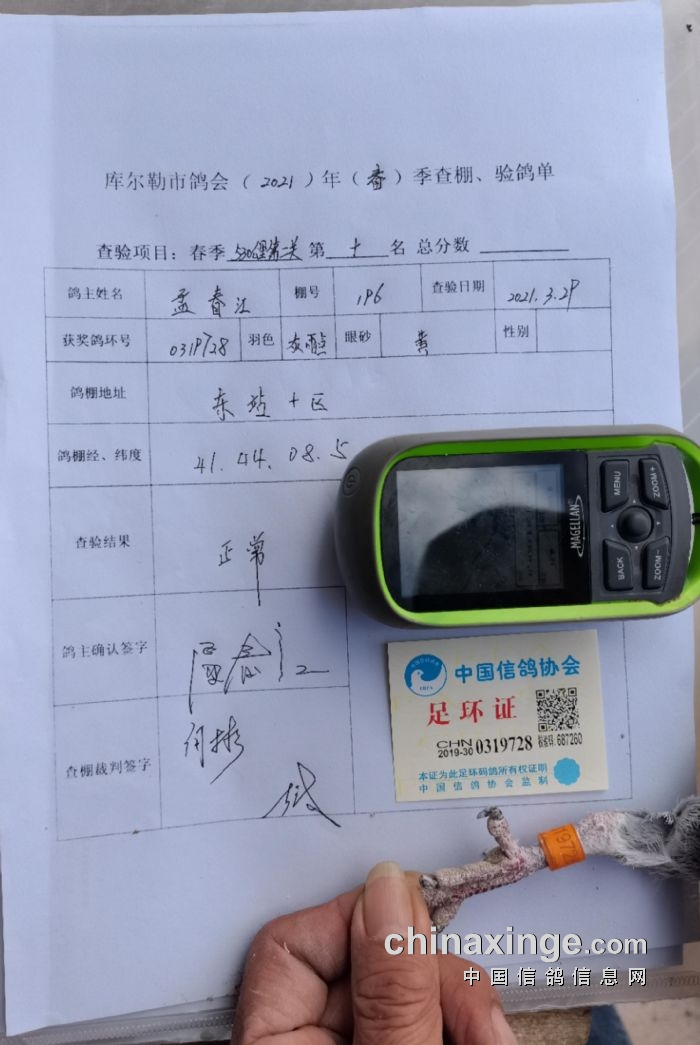 库尔勒市鸽会（2021）年（春）季查棚、验鸽单
查验项目：春季 530公里第一关 第 十 名 总分数
鸽主姓名 孟春江 棚号 196 查验日期 2021.3.29
获奖鸽环号 0319728 羽色 灰雨点 眼砂 黄 性别
鸽棚地址 东站十区
鸽棚经、纬度 41.44.08.5
查验结果 正常
鸽主确认签字
查棚裁判签字
MAGELLAN
MENU
ZOOM+
BACK
ZOOM-
中国信鸽协会
足环证
CHN
2019-30 0319728 校验码:687260
本证为此足环码鸽所有权证明
中国信鸽协会监制
1972
chinaxinge.com
中国信鸽信息网